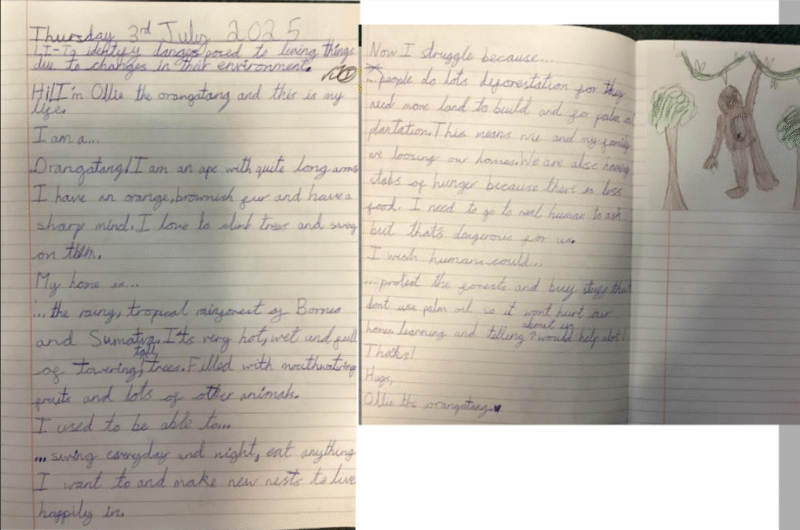 Thursday, 3rd July 2025
LI-To identify danges posed to living things
due to changes in their environment.
Hi! I'm Ollie the orangatang and this is my
life.
I am a...
Orangatang! I am an ape with quite long arms
I have an orange, brownish fur and have a
sharp mind. I love to climb trees and swing
on them.
My home is...
... the rainy, tropical rainforest of Borneo
and Sumatra. It's very hot, wet and full
of towering, tall trees. Filled with mouthwatering
fruits and lots of other animals.
I used to be able to...
... swing everyday and night, eat anything
I want to and make new nests to live
happily in.
Now I struggle because...
...people do lots deforestation for they
need more land to build and for palm oil
plantation. This means me and my family
are loosing our homes. We are also having
stabs of hunger because there is less
food. I need to go to near human to ask
but that's dangerous for us.
I wish humans could...
... protect the forests and buy stuff that
dont use palm oil so it wont hurt our
homes. learning and telling about us would help alot!
Thanks!
Hugs,
Ollie the orangatang